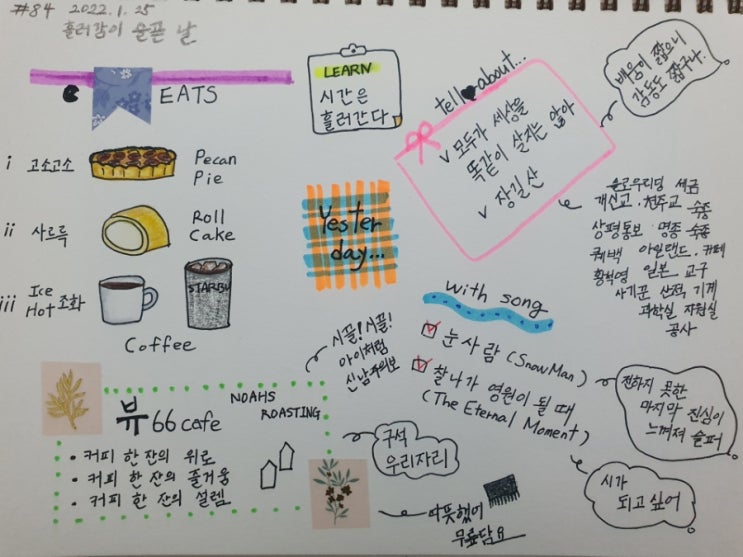 #84 2022.1.25
흘러감이 슬픈 날
EATS
i 고소고소 Pecan Pie
ii 사르륵 Roll Cake
iii Ice Hot 조화
STARBU
Coffee
LEARN
시간은
흘러간다
tell about...
v 모두가 세상을
똑같이 살지는 않아
v 장길산
배움이 짧으니
감동도 짧구나.
슬로우리딩 세금
개신교. 천주교 숙종
상평통보 명종 숙종
궤백 아일랜드. 카페
황석영 일본 교구
사기꾼 산적 기계
과학실 자원실
공사
Yester
day...
with song
눈사람 (SnowMan)
찰나가 영원이 될 때
(The Eternal Moment)
전하지 못한
마지막 진심이
느껴져 슬퍼
시가
되고 싶어
시끌! 시끌!
아이처럼
신남주의보
뷰66 cafe
NOAHS
ROASTING
• 커피 한 잔의 위로
• 커피 한 잔의 즐거움
• 커피 한 잔의 설렘
구석
우리자리
따뜻했어
무릎담요